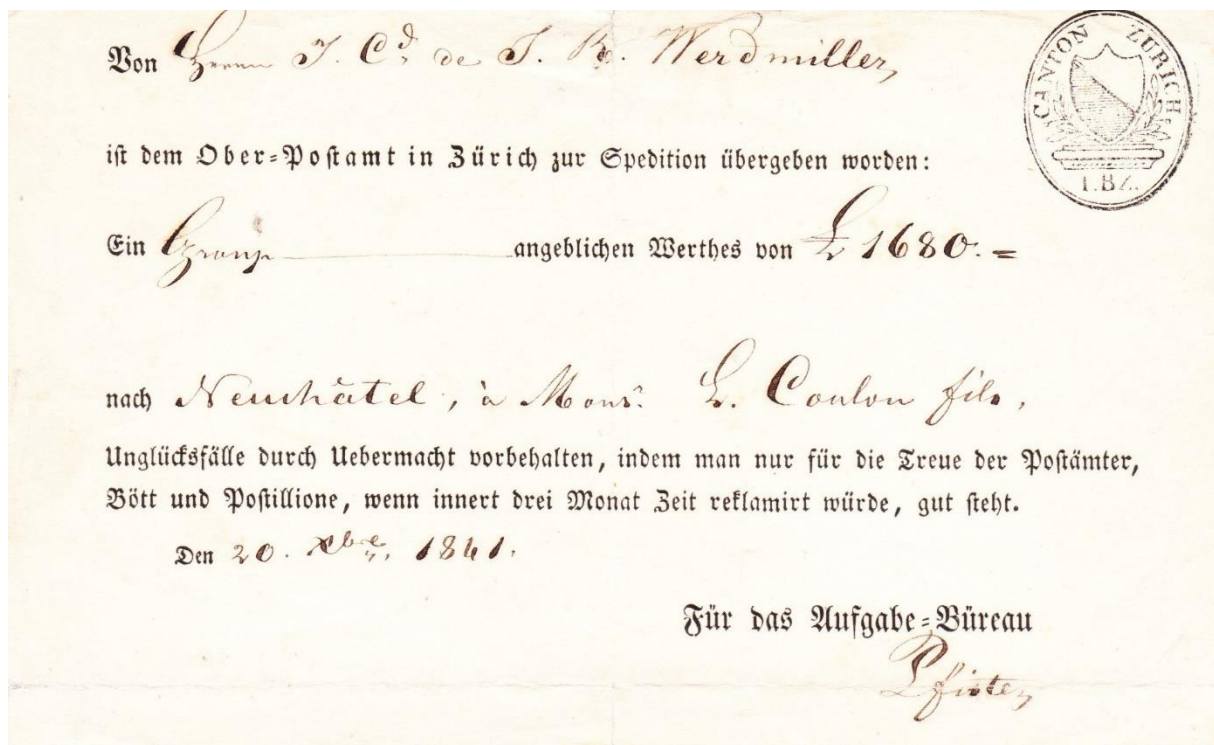 Von Herrn J. Cd de J. R. Werdmiller,
CANTON ZURICH.
1.BZ.
ist dem Ober=Postamt in Zürich zur Spedition übergeben worden:
Ein Group angeblichen Werthes von £ 1680.=
nach Neuchâtel, à Monsr. L. Coulon fils,
Unglücksfälle durch Uebermacht vorbehalten, indem man nur für die Treue der Postämter,
Bött und Postillione, wenn innert drei Monat Zeit reklamirt würde, gut steht.
Den 20. Xbre, 1841.
Für das Aufgabe=Büreau
Pfister